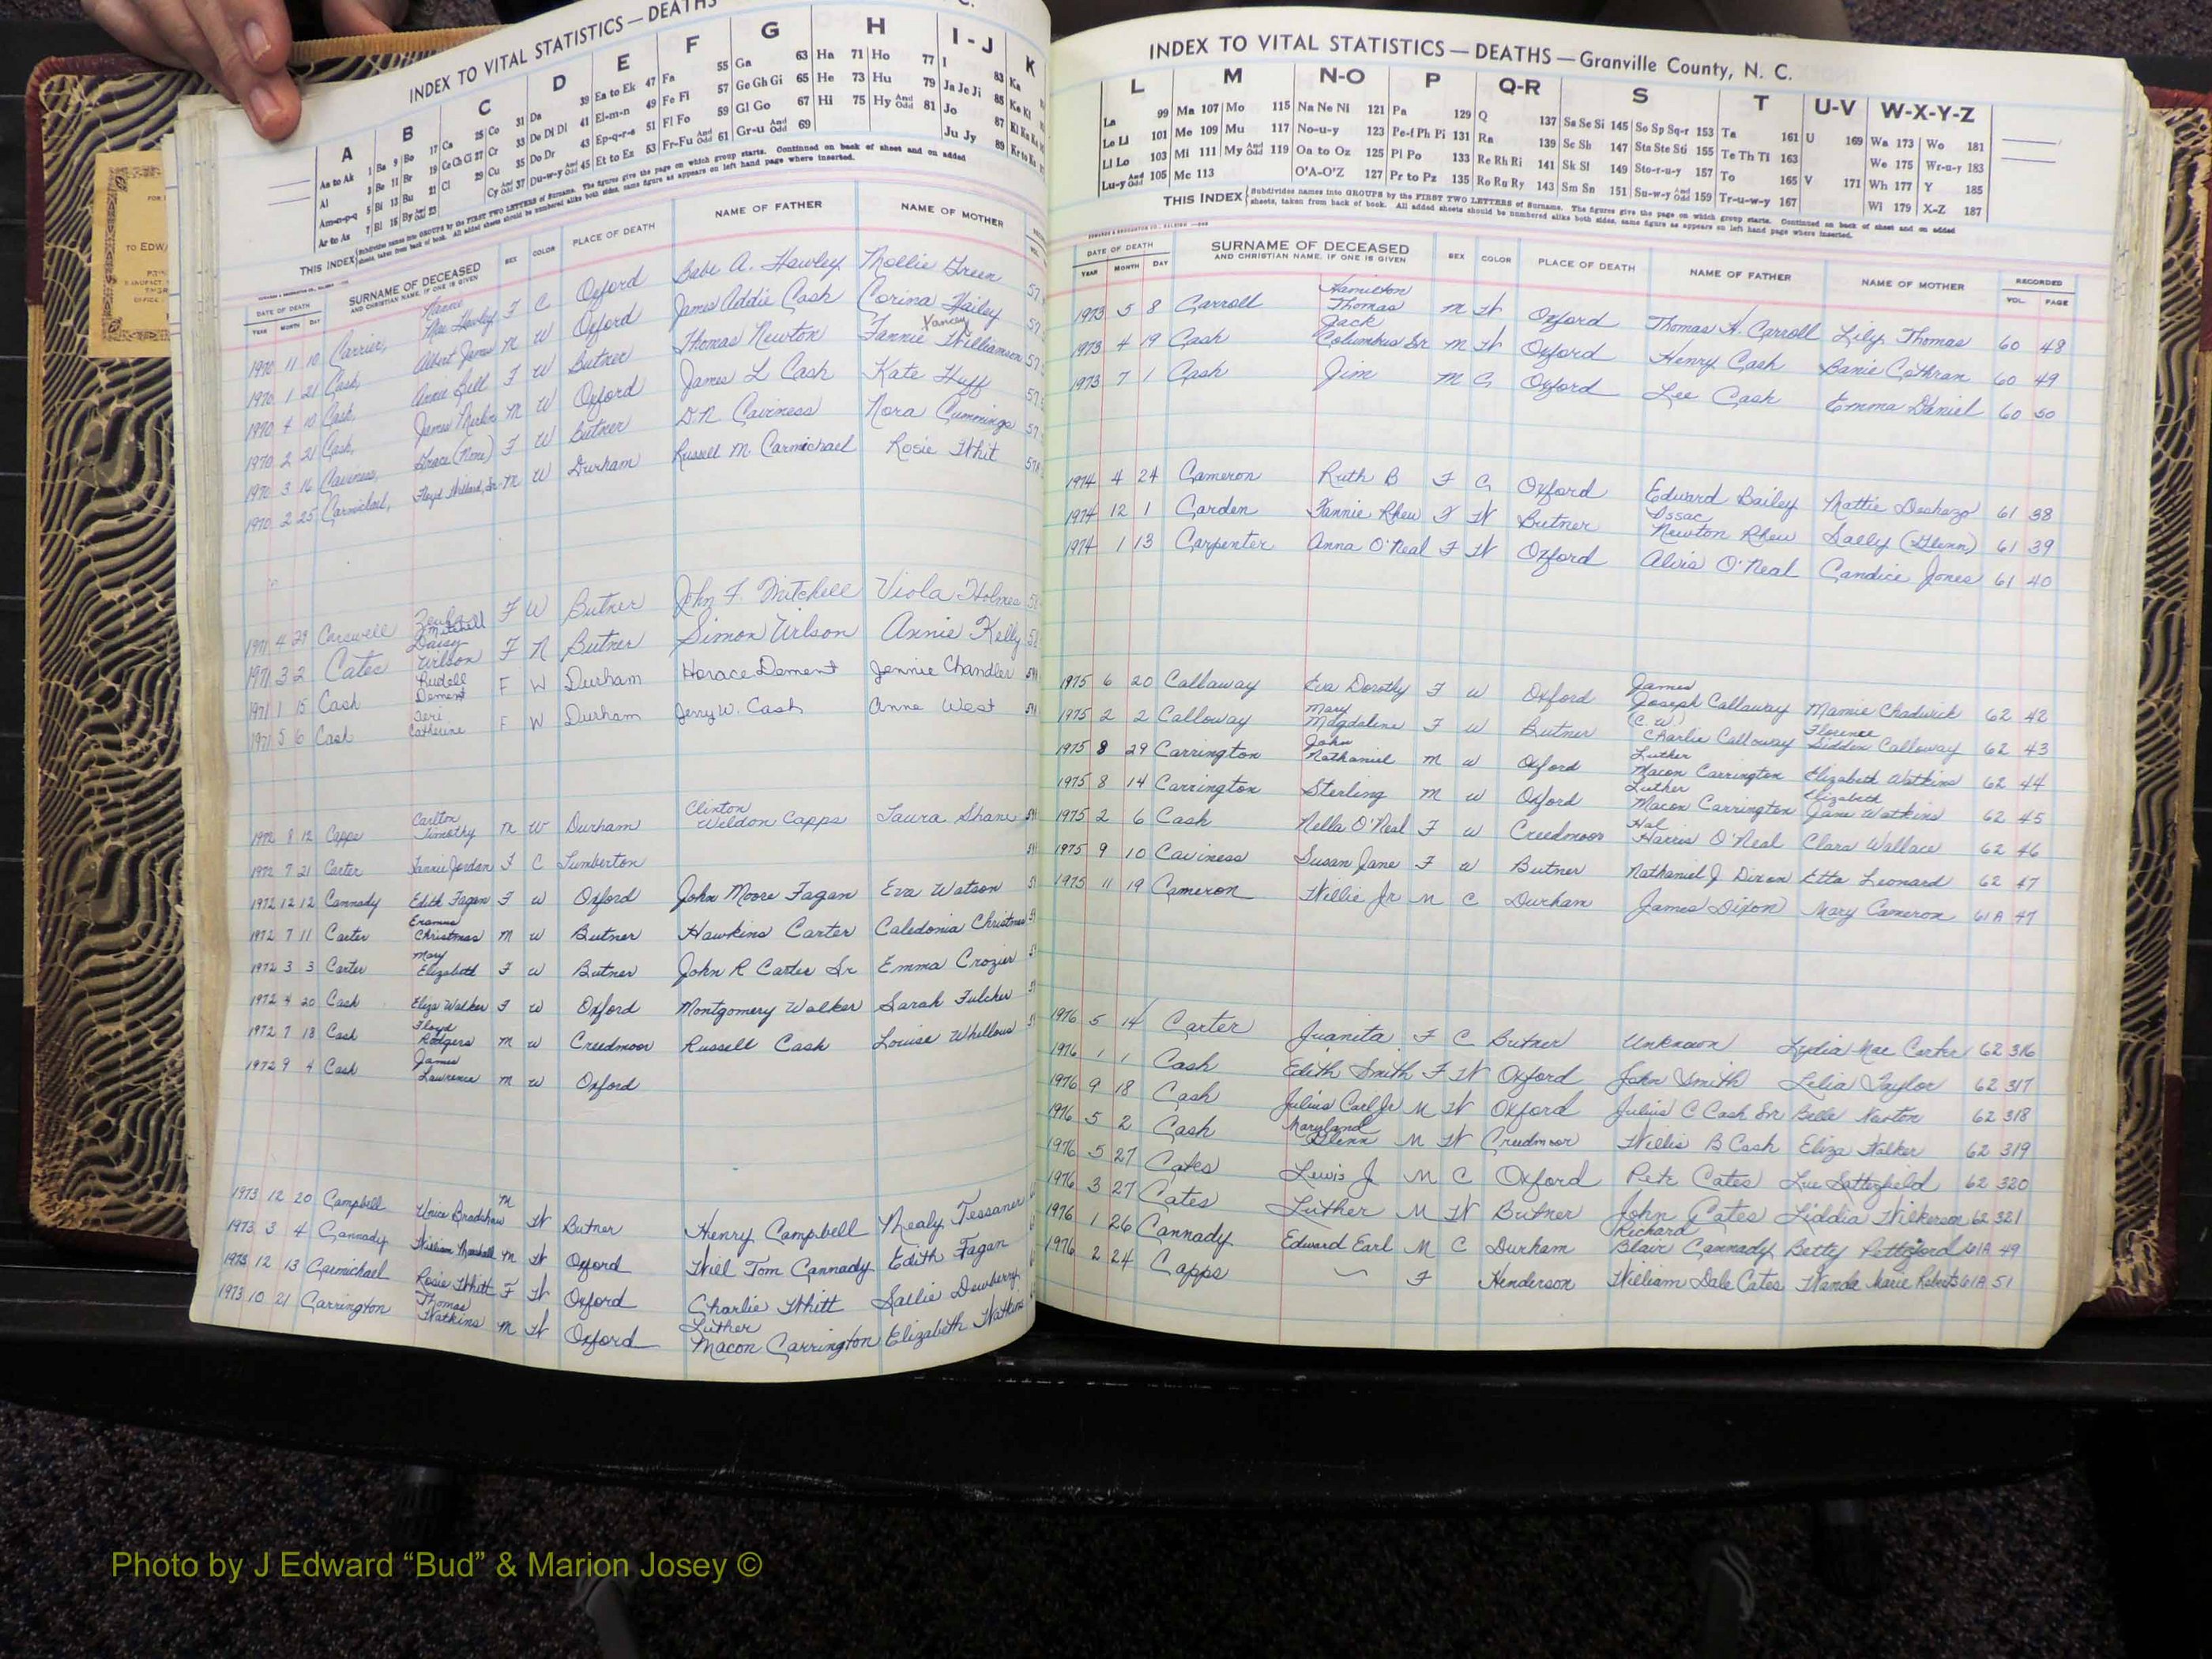 INDEX TO VITAL STATISTICS — DEATHS
A B C D E F G H I-J K
Aa to Ak 1 Ba 9 Bo 17 Ca 25 Co 31 Da 39 Ea to Ek 47 Fa 55 Ga 63 Ha 71 Ho 77 I 83 Ka
Al 3 Be 11 Br 19 Ce Ch Ci 27 Cr 33 De Di Dl 41 El-m-n 49 Fe Fi 57 Ge Gh Gi 65 He 73 Hu 79 Ja Je Ji 85 Ke Ki
Am-n-p-q 5 Bi 13 Bu 21 Cl 29 Cu 35 Do Dr 43 Ep-q-r-s 51 Fl Fo 59 Gl Go 67 Hi 75 Hy And Odd 81 Jo 87
Ar to Az 7 Bl 15 By And Odd 23 Cy And Odd 37 Du-w-y And Odd 45 Et to Ez 53 Fr-Fu And Odd 61 Gr-u And Odd 69 Ju Jy 89
THIS INDEX Subdivides names into GROUPS by the FIRST TWO LETTERS of Surname. The figures give the page on which group starts. Continued on back of sheet and on added
sheets, taken from back of book. All added sheets should be numbered alike both sides, same figure as appears on left hand page where inserted.
DATE OF DEATH SURNAME OF DECEASED SEX COLOR PLACE OF DEATH NAME OF FATHER NAME OF MOTHER
YEAR MONTH DAY AND CHRISTIAN NAME, IF ONE IS GIVEN
1970 11 10 Carrier, Nannie Mae Hawley F C Oxford Babe A. Hawley Mollie Green 57
1970 1 21 Cash, Albert James M W Oxford James Addie Cash Corina Hailey 57
1970 4 10 Cash, Annie Bell F W Butner Thomas Newton Fannie Yancey Williamson 57
1970 2 21 Cash, James M W Oxford James L Cash Kate Huff 57
1970 3 16 Caviness, Grace (None) F W Butner D.N. Caviness Nora Cummings 57
1970 2 25 Carmichael, Floyd Sr. M W Durham Russell M. Carmichael Rosie Whit 57
1971 4 29 Carswell Mitchell F W Butner John F. Mitchell Viola Holmes
1971 3 2 Cates Daisy Wilson F N Butner Simon Wilson Annie Kelly
1971 1 15 Cash Ludell Dement F W Durham Horace Dement Jennie Chandler
1971 5 6 Cash Teri Catherine F W Durham Jerry W. Cash Anne West
1972 8 12 Capps Carlton Timothy M W Durham Clinton Weldon Capps Laura Shane
1972 7 21 Carter Fannie Jordan F C Lumberton
1972 12 12 Cannady Edith Fagan F W Oxford John Moore Fagan Eva Watson
1972 7 11 Carter Erasmus Christmas M W Butner Hawkins Carter Caledonia Christmas
1972 3 3 Carter Mary Elizabeth F W Butner John R Carter Sr Emma Crozier
1972 4 20 Cash Eliza Walker F W Oxford Montgomery Walker Sarah Fulcher
1972 7 18 Cash Floyd Rodgers M W Creedmoor Russell Cash Louise Whillous
1972 9 4 Cash James Lawrence M W Oxford
1973 12 20 Campbell Unice Bradshaw M W Butner Henry Campbell Nealy Tessaner
1973 3 4 Cannady William Marshall M W Oxford Will Tom Cannady Edith Fagan
1973 12 13 Carmichael Rosie Whitt F W Oxford Charlie Whitt Sallie Dewberry
1973 10 21 Carrington Thomas Watkins M W Oxford Luther Macon Carrington Elizabeth Watkins
INDEX TO VITAL STATISTICS — DEATHS — Granville County, N. C.
L M N-O P Q-R S T U-V W-X-Y-Z
La 99 Ma 107 Mo 115 Na Ne Ni 121 Pa 129 Q 137 Sa Se Si 145 So Sp Sq-r 153 Ta 161 U 169 Wa 173 Wo 181
Le Ll 101 Me 109 Mu 117 No-u-y 123 Pe-f Ph Pi 131 Ra 139 Sc Sh 147 Sta Ste Sti 155 Te Th Ti 163 We 175 Wr-u-y 183
Ll Lo 103 Mi 111 My And Odd 119 Oa to Oz 125 Pl Po 133 Re Rh Ri 141 Sk Sl 149 Sto-r-u-y 157 To 165 V 171 Wh 177 Y 185
Lu-y And Odd 105 Mc 113 O'A-O'Z 127 Pr to Pz 135 Ro Ru Ry 143 Sm Sn 151 Su-w-y And Odd 159 Tr-u-w-y 167 Wi 179 X-Z 187
THIS INDEX Subdivides names into GROUPS by the FIRST TWO LETTERS of Surname. The figures give the page on which group starts. Continued on back of sheet and on added
sheets, taken from back of book. All added sheets should be numbered alike both sides, same figure as appears on left hand page where inserted.
DATE OF DEATH SURNAME OF DECEASED SEX COLOR PLACE OF DEATH NAME OF FATHER NAME OF MOTHER RECORDED
YEAR MONTH DAY AND CHRISTIAN NAME, IF ONE IS GIVEN VOL. PAGE
1973 5 8 Carroll Hamilton Thomas M W Oxford Thomas H. Carroll Lily Thomas 60 48
1973 4 19 Cash Jack Columbus Sr M W Oxford Henry Cash Banie Cothran 60 49
1973 7 1 Cash Jim M C Oxford Lee Cash Emma Daniel 60 50
1974 4 24 Cameron Ruth B F C Oxford Edward Bailey Mattie Deshazo 61 38
1974 12 1 Carden Fannie Rhew F W Butner Issac Newton Rhew Sally (Glenn) 61 39
1974 1 13 Carpenter Anna O'Neal F W Oxford Alvis O'Neal Candice Jones 61 40
1975 6 20 Callaway Eva Dorothy F W Oxford James Joseph Callaway Mamie Chadwick 62 42
1975 2 2 Calloway Mary Magdaline F W Butner (C.W.) Charlie Calloway Florence Sidden Calloway 62 43
1975 8 29 Carrington John Nathaniel M W Oxford Luther Macon Carrington Elizabeth Watkins 62 44
1975 8 14 Carrington Sterling M W Oxford Luther Macon Carrington Elizabeth Jane Watkins 62 45
1975 2 6 Cash Nella O'Neal F W Creedmoor Hal Harris O'Neal Clara Wallace 62 46
1975 9 10 Caviness Susan Jane F W Butner Nathaniel J Dixon Etta Leonard 62 47
1975 11 19 Cameron Willie Jr M C Durham James Dixon Mary Cameron 61A 47
1976 5 14 Carter Juanita F C Butner Unknown Lydia Mae Carter 62 316
1976 1 1 Cash Edith Smith F W Oxford John Smith Lelia Taylor 62 317
1976 9 18 Cash Julius Carl Jr M W Oxford Julius C Cash Sr Belle Newton 62 318
1976 5 2 Cash Maryland Glenn M W Creedmoor Willis B Cash Eliza Walker 62 319
1976 5 27 Cates Lewis J M C Oxford Pete Cates Lue Satterfield 62 320
1976 3 27 Cates Luther M W Butner John Cates Liddia Wilkerson 62 321
1976 1 26 Cannady Edward Earl M C Durham Richard Blair Cannady Betty Pettiford 61A 49
1976 2 24 Capps F Henderson William Dale Cates Wanda Marie Roberts 61A 51
Photo by J Edward “Bud” & Marion Josey ©